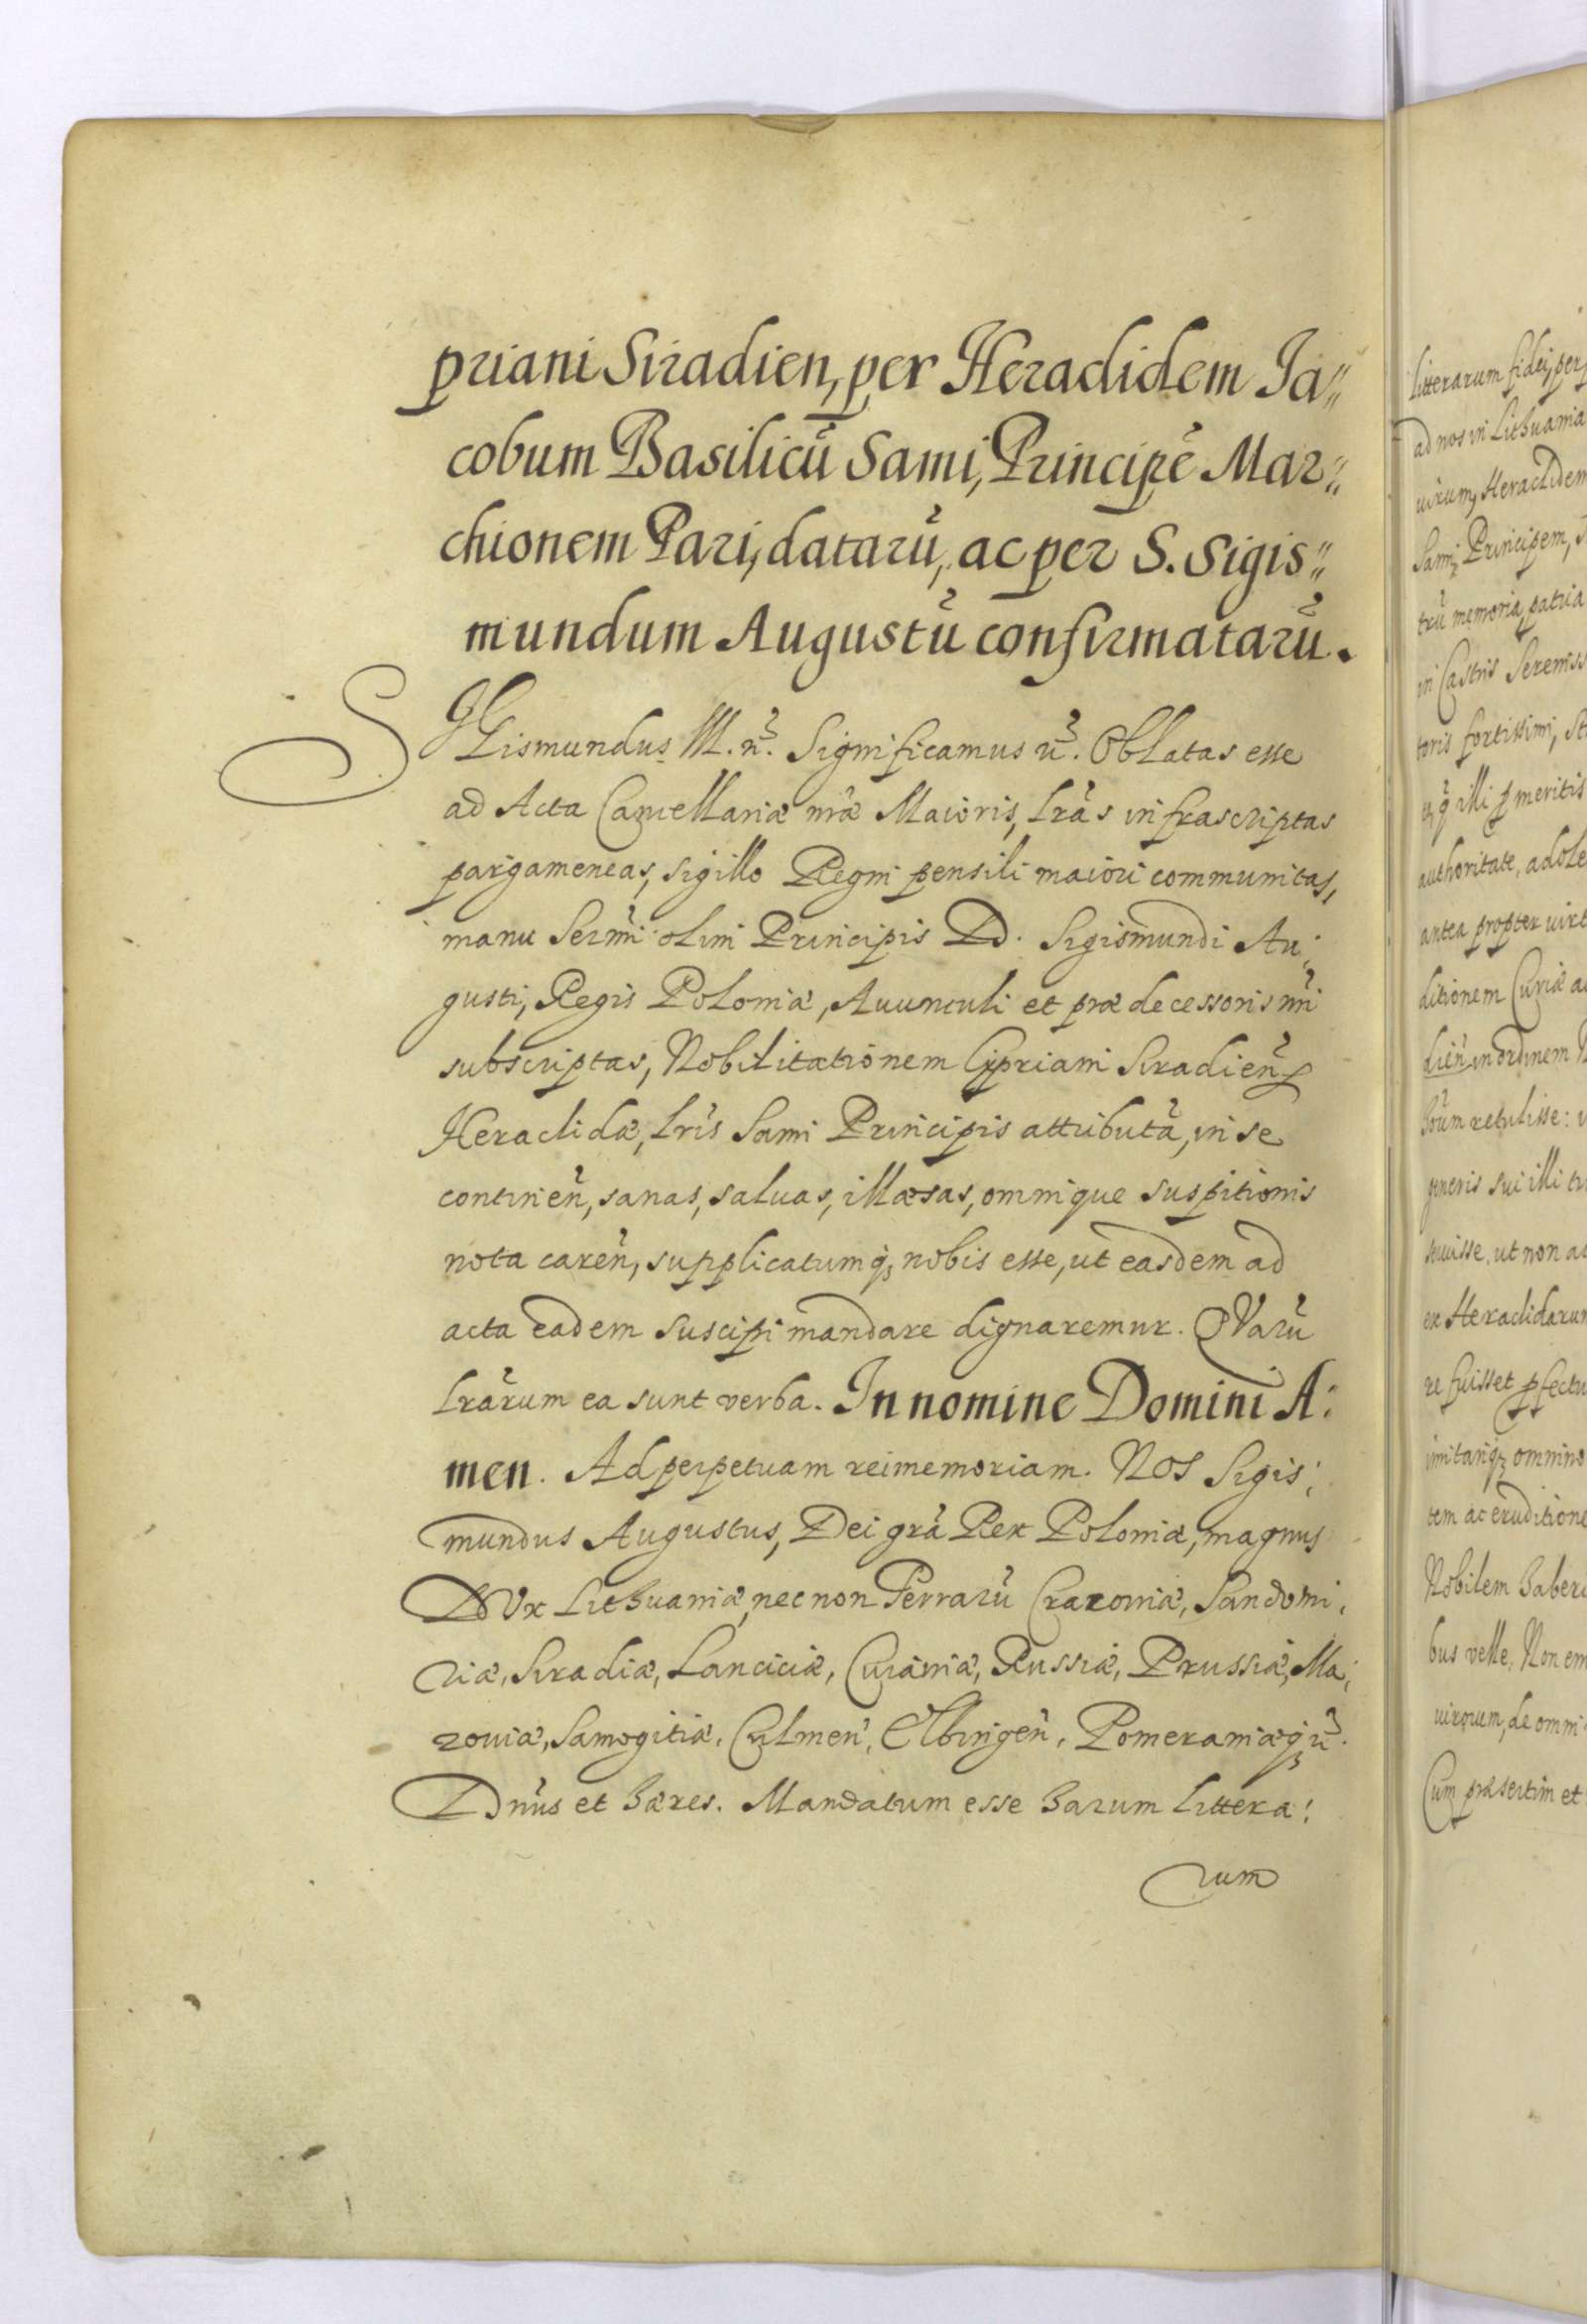 priani Siradien, per Heraclidem Ja„
cobum Basilicũ Sami, Principẽ Mar„
chionem Pari, datarũ, ac per S. Sigis„
mundum Augustũ confirmatarũ.
SIGismundus III. ñ. Significamus ũ. Oblatas esse
ad Acta Cancellariæ nr̃æ Maioris, lr̃as infrascriptas
pargameneas, sigillo Regni pensili maiori communitas,
manu Serm̃i olim Principis D̃d. Sigismundi Au:
gusti, Regis Poloniæ, Auunculi et prædecessoris nr̃i
subscriptas, Nobilitationem Cypriani Siradieñ
Heraclidæ, lr̃is Sami Principis attributã, in se
continẽn, sanas, saluas, illæsas, omnique suspitionis
nota carẽn, supplicatumq; nobis esse, ut easdem ad
acta eadem suscipi mandare dignaremur. QVarũ
lr̃arum ea sunt verba. In nomine Domini A:
men. Ad perpetuam rei memoriam. NOS Sigis:
mundus Augustus, Dei gr̃a Rex Poloniæ, magnus
DUx Lithuaniæ, nec non Terrarũ Cracoviæ, Sandomi:
riæ, Siradiæ, Lanciciæ, Cuiaviæ, Russiæ, Prussiæ, Ma:
zoviæ, Samogitiæ, Culmeñ, Elbingeñ, Pomeraniæq; ũ.
Dñus et hæres. Mandatum esse harum littera:
rum
litterarum fidei, per
ad nos in Lithuania
uirum, Heraclidem
Sami, Principem,
trũ memoria, patria
in Castris Sereniss
toris fortissimi,
illi p meritis
authoritate, adole
antea propter uirt
ditionem Curiæ
dieñ in ordinem
retulisse:
generis sui illi
ut non
ex Heraclidarum
re fuisset pfectu
imitariq; omnino
tem ac eruditione
Nobilem habere
bus velle. Non em
de omni
Cum præsertim et